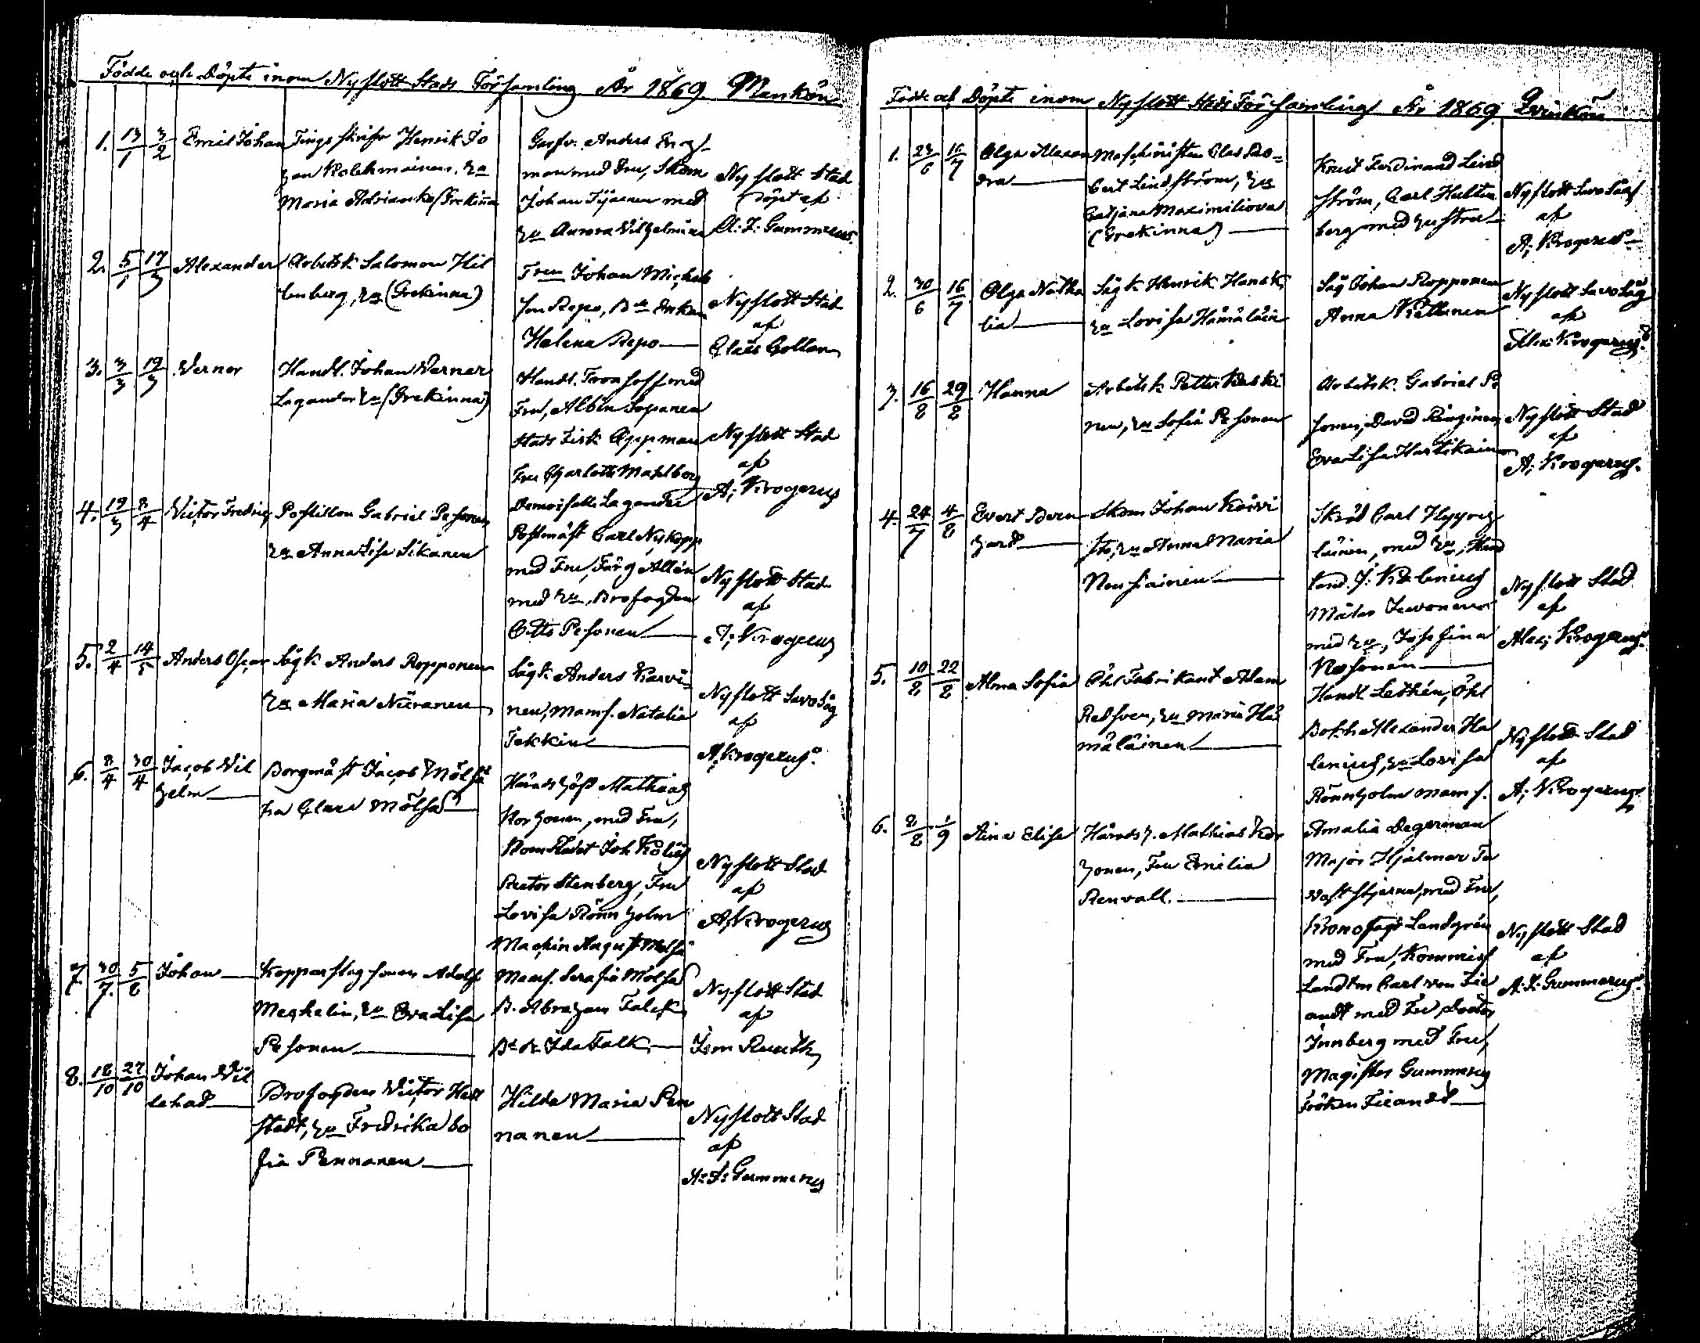 Födde och Döpte inom Nyslott Stads Församling År 1869. Mankön
1. 13/1 3/2 Emil Johan
Tingsskrifv Henrik Jo
han Kolehmainen, hu
Maria Adrianka (Grekinna
Garfv. Anders Berg-
man med Fru, Skom
Johan Tijainen med
hu Aurora Wilhelmina
Nyslott Stad
Döpt af
A. F. Gummerus.
2. 5/1 17/3 Alexander
Arbetsk Salomon Hil
tenberg, hu (Grekinna)
Fru Johan Michels
son Repo, Enkan
Helena Repo
Nyslott Stad
af
Claës Collan
3. 3/3 19/3 Verner
Handl. Johan Werner
Lagander hu (Grekinna)
Handl. med
Fru, Albin Sopanen
Stads Fisk Oppman
Fru Charlotte Mahlberg
Demoiselle Lagander
Nyslott Stad
af
A; Krogerus
4. 19/3 8/4 Victor Fredric
Postillon Gabriel Pesonen
hu Anna Lisa Sikanen
Postmäst Carl Nykopp
med Fru, Färg Allén
med hu, Brofogden
Otto Pesonen
Nyslott Stad
af
A; Krogerus
5. 2/4 14/5 Anders Oscar
Sågk Anders Ropponen
hu Maria Niiranen
Sågk. Anders Karvi-
nen, Mams. Natalia
Tekkin
Nyslott Savo Såg
af
A; Krogerus.
6. 8/4 30/4 Jacob Wil
helm
Borgmäst Jacob Mölsä
Fru Clara Mölsä
Häradshöfd Mathias
Korhonen, med Fru,
Joh Kolius
Rector Stenberg, Fru
Lovisa Rönnholm
Maskin August Mölsä
Mams. Serafia Mölsä
Nyslott Stad
af
A; Krogerus
7. 30/7. 5/8 Johan
Kopparslag sonen Adolf
Meskelin, hu Eva Lisa
Pesonen
B. Abraham Falck,
Ida Falk
Nyslott Stad
af
Jsm Ruuth,
8. 18/10 27/10 Johan Wil
lehad
Brofogden Victor Hell
stedt, hu Fredrika So
fia Pennanen
Hilda Maria Pen
nanen
Nyslott Stad
af
A: F: Gummerus
Födde och Döpte inom Nyslott Stads Församling År 1869. Qvinkön
1. 16/7 Olga Alexan
dra
Maschinisten Clas Ro-
bert Lindström, hu
Tatjana Maximiliova
(Grekinna)
Knut Ferdinand Lind
ström, Carl Hulten
berg med hustru
Nyslott Savo Såg
af
A; Krogerus
2. 30/6 16/7 Olga Natha
lia
Sågk Henrik Hanski
hu Lovisa Hämäläin
Såg Johan Ropponen
Anna Kettunen
Nyslott Savo Såg
af
Alex: Krogerus.
3. 16/8 29/8 Hanna
Arbetsk Petter Keski
nen, hu Sofia Pesonen
Arbetsk. Gabriel Pe
sonen, David
Eva Lisa Hartikainen
Nyslott Stad
af
A; Krogerus.
4. 24/7 4/8 Evert Bern
hard
Skom Johan Koivi
sto, hu Anna Maria
Nousiainen
Skräd Carl Hyyry
läinen, med hu, Hand
land. J. Kilenius
Målar Iivonen
med hu, Josefina
Nyslott Stad
af
Alex; Krogerus.
5. 10/8 22/8 Alma Sofia
Öhl Fabrikant Adam
Redsven, hu Maria Hä
mäläinen
Handl Lethén, Öhl
Bokh Alexander He
lenius, hu Lovisa
Rönnholm Mams.
Amalia Degerman
Nyslott Stad
af
A; Krogerus.
6. 2/8 1/9 Aina Elise
Häradsh. Mathias Kor
honen, Fru Emilia
Renvall.
Major Hjalmar Ta
vaststjerna, med Fru,
Kronofogd Landgrén
med Fru, Kommiss
Landtm Carl von Fie
andt med Fru, Doctor
Innberg med Fru,
Magister Gummerus
Fröken Fieandt
Nyslott Stad
af
A. F. Gummerus.